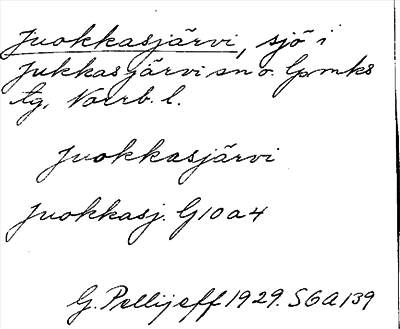 Juokkasjärvi, sjö i
Jukkasjärvi sn o. Lpmks
tg, Norrb. l.
Juokkasjärvi
Juokkasj. G10a4
G. Pellijeff 1929. SGA 139